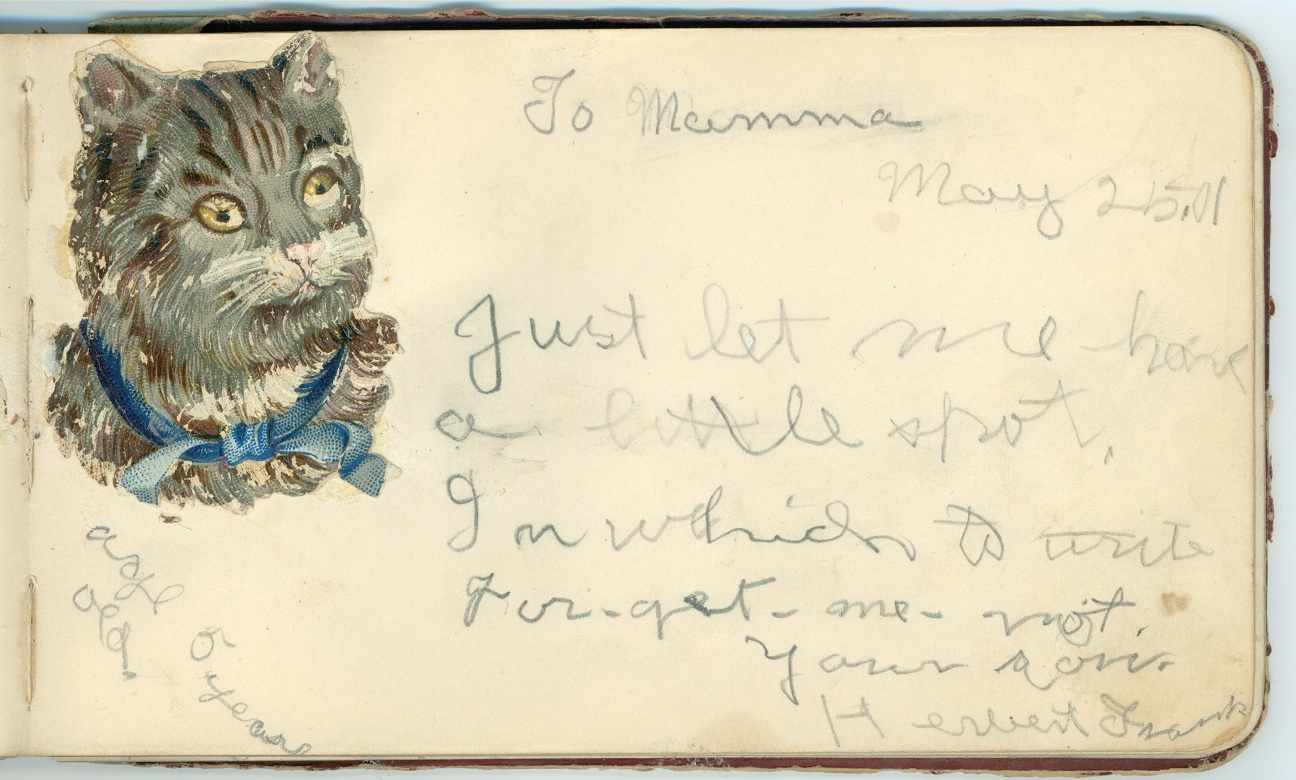 To Mamma
May 25.01
Just let me have
a little spot,
In which to write
For-get-me-not.
Your son.
Herbert Frank
age 5 years
old.